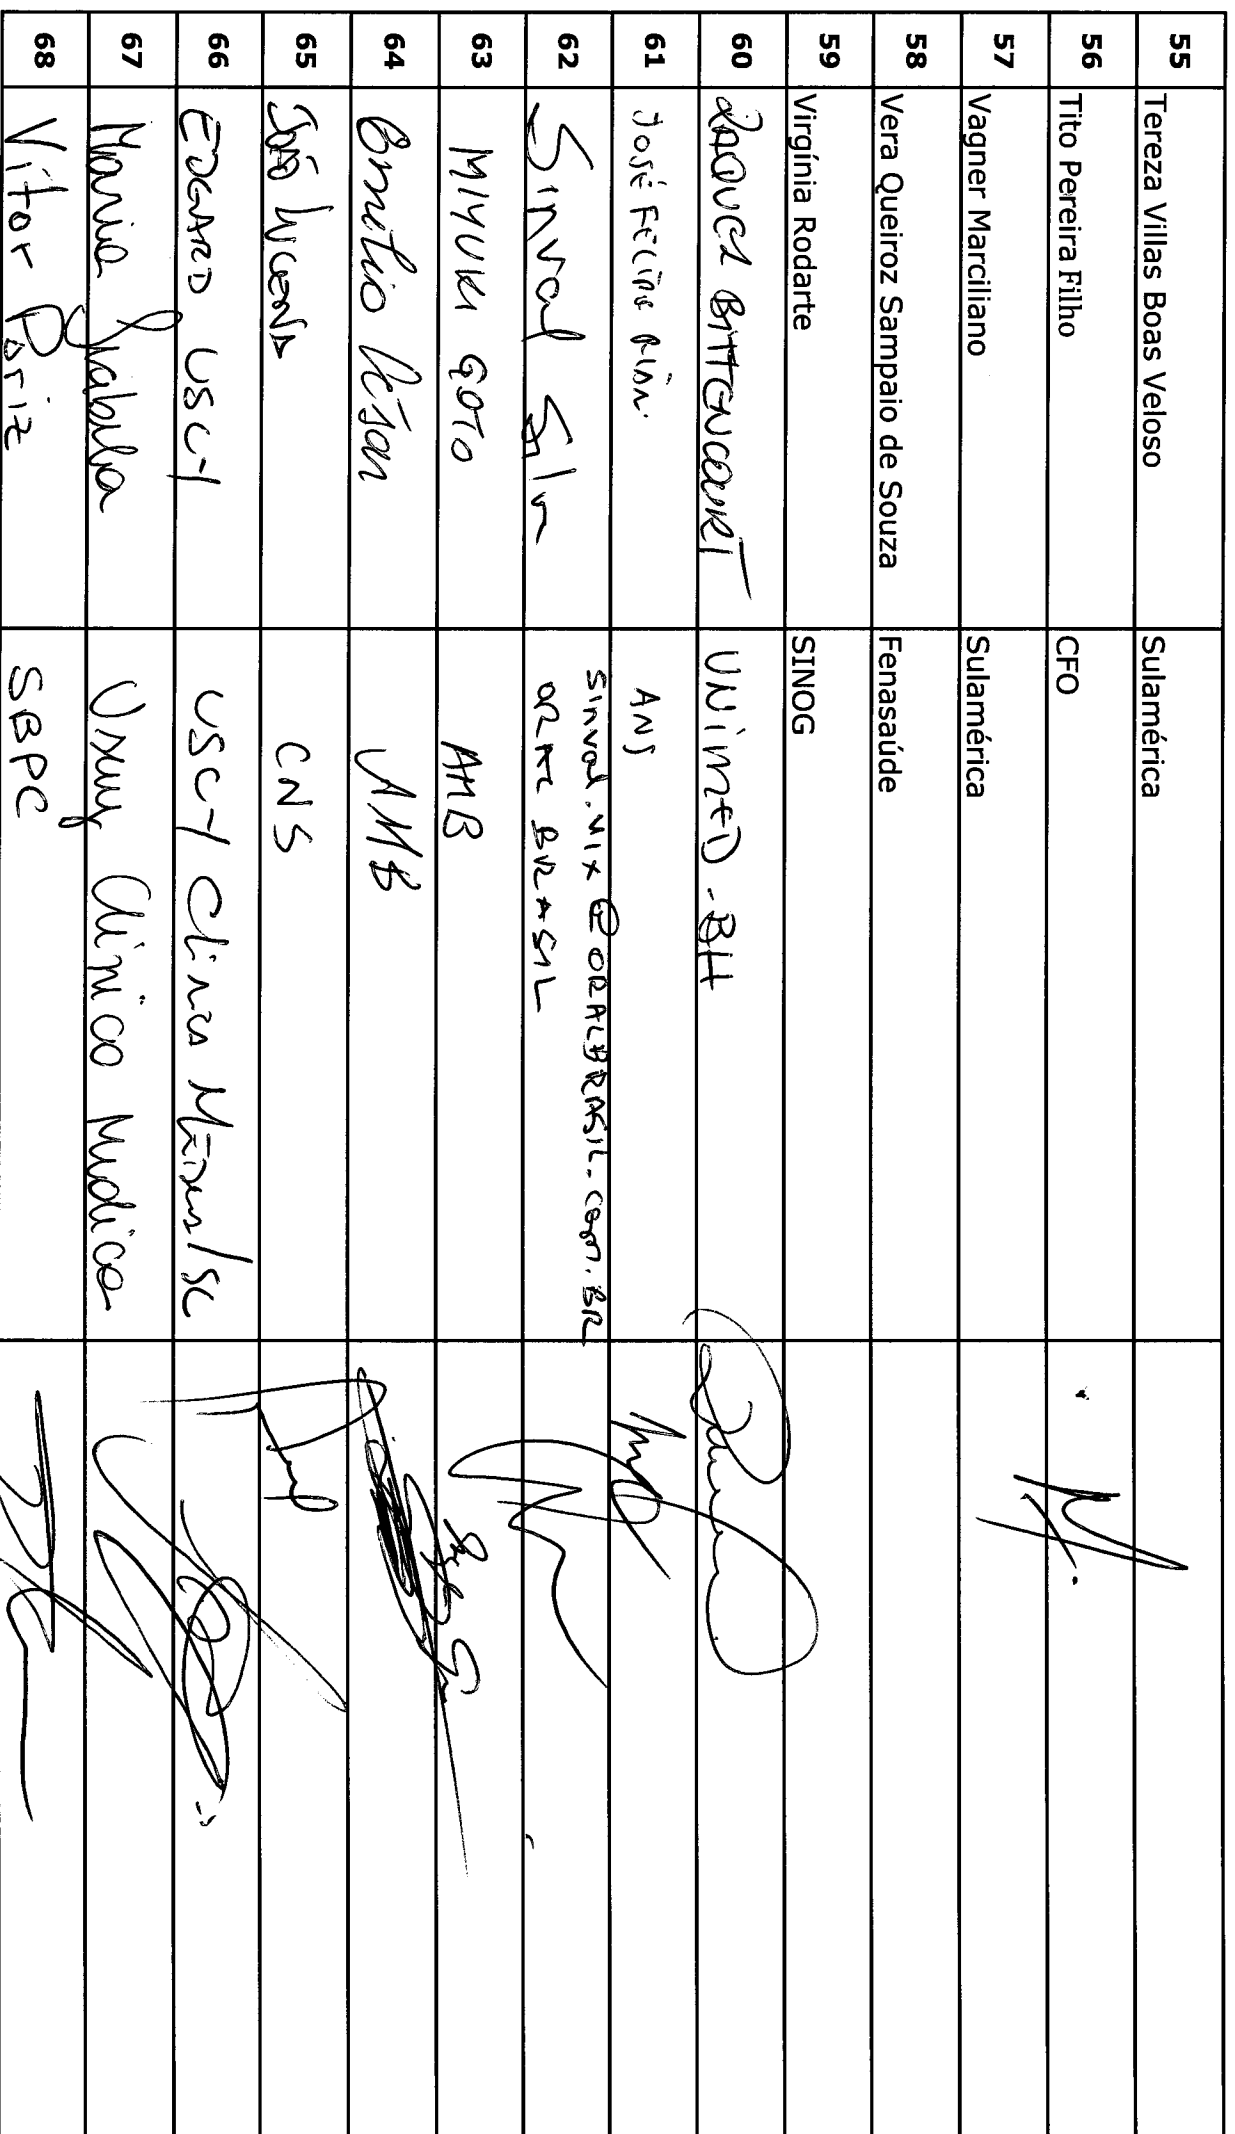 55 Tereza Villas Boas Veloso Sulamérica
56 Tito Pereira Filho CFO
57 Vagner Marciliano Sulamérica
58 Vera Queiroz Sampaio de Souza Fenasaúde
59 Virgínia Rodarte SINOG
60 RAQUEL BITTENCOURT UNIMED-BH
61 José Felipe ANS
62 Sinval Silva sinval.vix@ORALBRASIL.com.BR
ORAL BRASIL
63 MIYUKI GOTO AMB
64 AMB
65 João Lucena CNS
66 EDGARD USCY USCY Clinics /SC
67 Clínica Medica
68 Vitor Pariz SBPC